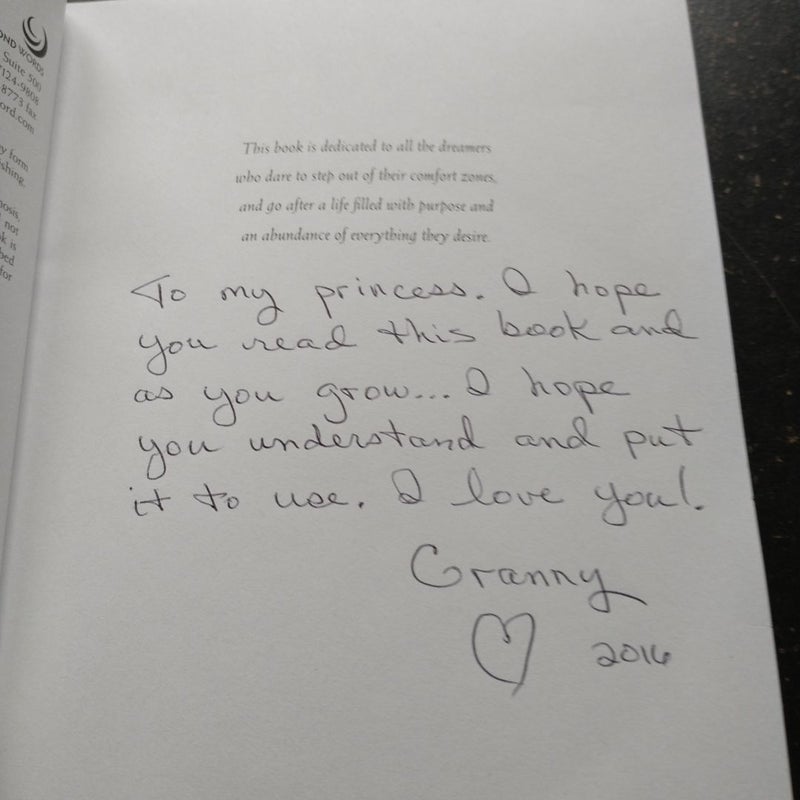 OND WORDS
Suite 500
7124-9808
8773 fax
ord.com
y form
shing.
nosis,
not
k is
bed
for
This book is dedicated to all the dreamers
who dare to step out of their comfort zones,
and go after a life filled with purpose and
an abundance of everything they desire.
To my princess. I hope
you read this book and
as you grow... I hope
you understand and put
it to use. I love you!.
Granny
2016